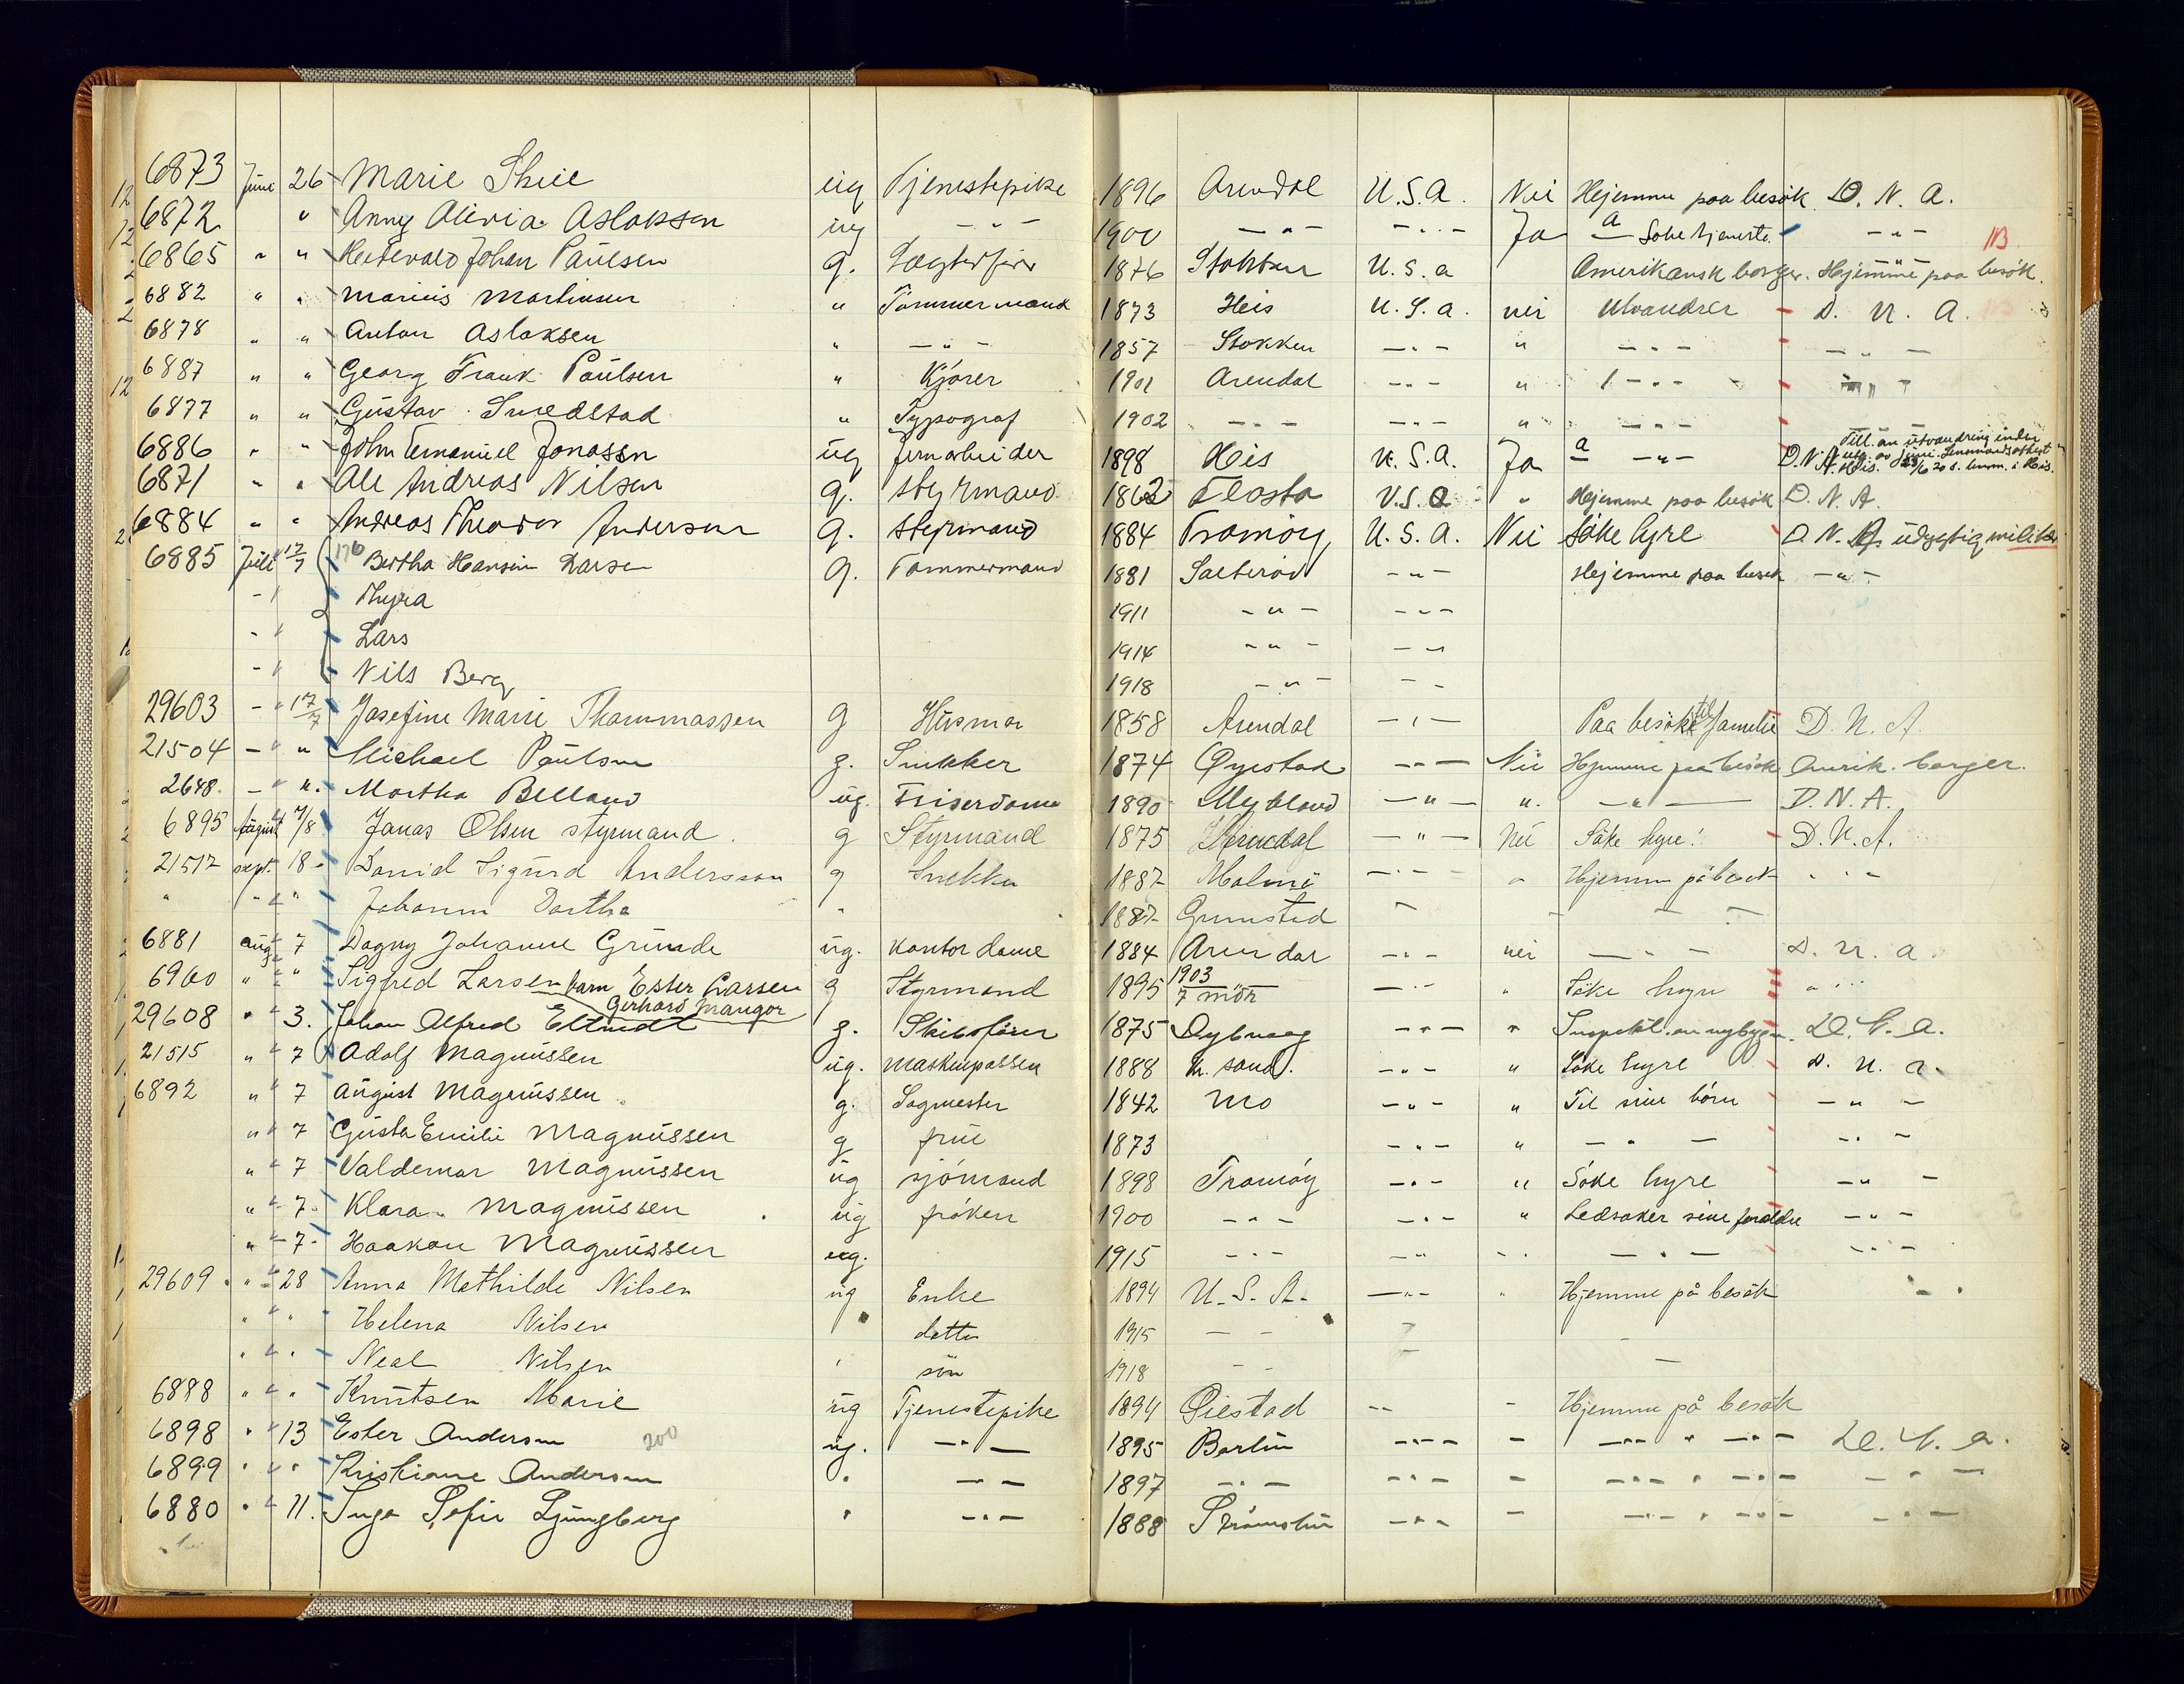 6873 June 26 Marie Skiie ug Tjenestepike 1896 Arendal U.S.A. Nei Hejemme paa besøk D. N. A.
6872 " Anny Olivia Aslaksen ug - " - 1900 - " - - " - Ja a Søke tjeneste - " -
6865 " " Johan Paulsen g. 1876 Stokken U.S.a Amerikansk borger. Hejemme paa besøk. NB.
6882 " " Marius Martinsen " Tømmermand 1873 Heis U.S.a. nei Utvandrer D. N. A. NB
6878 " " Anton Aslaksen " - " - 1857 Stokken - " - " - " - - " -
6887 " " Georg Frank Paulsen " Kjører 1901 Arendal - " - " - " - " "
6877 " " Gustav Smedstad " Typograf 1902 - " - - " - " - " -
6886 " " John Emanuel Jonassen ug Jernarbeider 1898 His U.S.A. Ja a - " - D.N.A.
6871 " " Ole Andreas Nilsen g. styrmand 1862 Flosta U.S.A " Hejemme paa besøk D. N. A.
6884 " " Andreas Theodor Andersen g. styrmand 1884 Tromøy U.S.A. Nei søke hyre D. N. A. udygtig militær
6885 Juli 17/7 176 Bertha Hansine Larsen g. Tømmermand 1881 Salterød - " - Hejemme paa besøk - " -
- " Thyra 1911 - " - - " -
- " Lars 1914 - " - - "
- " Nils Berg 1918 - " - - -
29603 - " 17/7 Josefine Marie Thommassen g Husmor 1858 Arendal - " - Paa besøk til familie D. N. A.
21504 - " " Michael Paulsen g. Snekker 1874 Øyestad - " - Nei Hjemme paa besøk Amrik. borger.
2648. - " ". Martha Belland ug. Friserdame 1890 Mykland - " - ". - " - D.N.A.
6895 August 7/8 Jonas Olsen styrmand. g Styrmand 1875 Arendal - " - Nei Søke hyre! D.N.A.
21517 sept. 18 - David Sigurd Andersson g Snekker 1887 Malmø - " - " Hjemme på besøk " " "
" " " " Johanne Dorthe " 1887 Grimstad - - - -
6881 aug 7 Dagny Johanne Grunde ug. kontordame 1884 Arendal - " - nei - " - D. N. a.
6900 " " " Sigfred Larsen barn Ester Larsen g Styrmand 1895 1903 7 mdr - " - " Søke hyre " " "
Gerhard Mangor
29608 " " 3. Johan Alfred g. Skibsfører 1875 Dybvaag - " - " D. N. a.
21515 " " 7 Adolf Magnussen ug. maskinpasser 1888 k. sand. - " - " Søke hyre D. N. a.
6892 " 7 August Magnussen g. Sagmester 1842 Mo - " - " Til sine børn - " -
" " 7 Gusta Emilie Magnussen g frue 1873 - " - " - " - - " -
" " 7 Valdemar Magnussen ug sjømand 1898 Tromøy - " - " Søke hyre - " -
" " 7. Klara Magnussen ug frøken 1900 - " - - " - " Ledsaker sine foreldre - " -
" " 7. Haakon Magnussen ug. 1915 - " - - " " " - " - - " -
29609 " " 28 Anna Mathilde Nilsen ug Enke 1894 U.S.A. - " - " Hjemme på besøk
" " " Helena Nilsen datter 1915 - - -
" " " Neal Nilsen ' søn 1918 - - -
6888 " " " Knutsen Marie ug Tjenestepike 1894 Øiestad - - - Hjemme på besøk
6898 " " 13 Ester Andersen 200 ug. - " - 1895 Berlin - " - - - " - " - " - D. N. a.
6899 " " " Kristiane Andersen " - - 1897 - " - - " - - - " - " - " - - " -
6880 " " 11. Inga Sofie Ljungberg " - " - 1888 - " - - - " - " - " - - " -